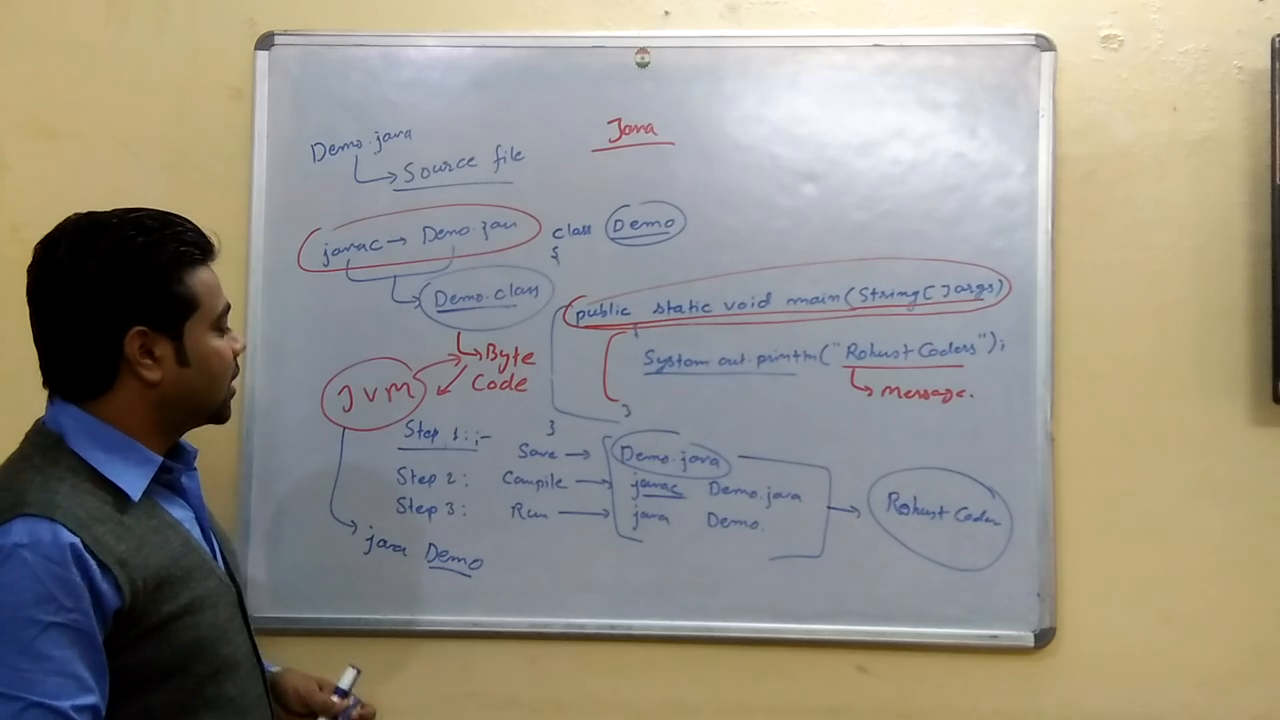 Java
Demo.java
Source file
javac → Demo.java
Demo.class
Byte
Code
JVM
java Demo
class Demo
{
public static void main(String[] args)
{
System.out.println("Robust Coders");
Message.
}
}
Step 1:- Save → Demo.java
Step 2: Compile → javac Demo.java
Step 3: Run → java Demo.
Robust Coder